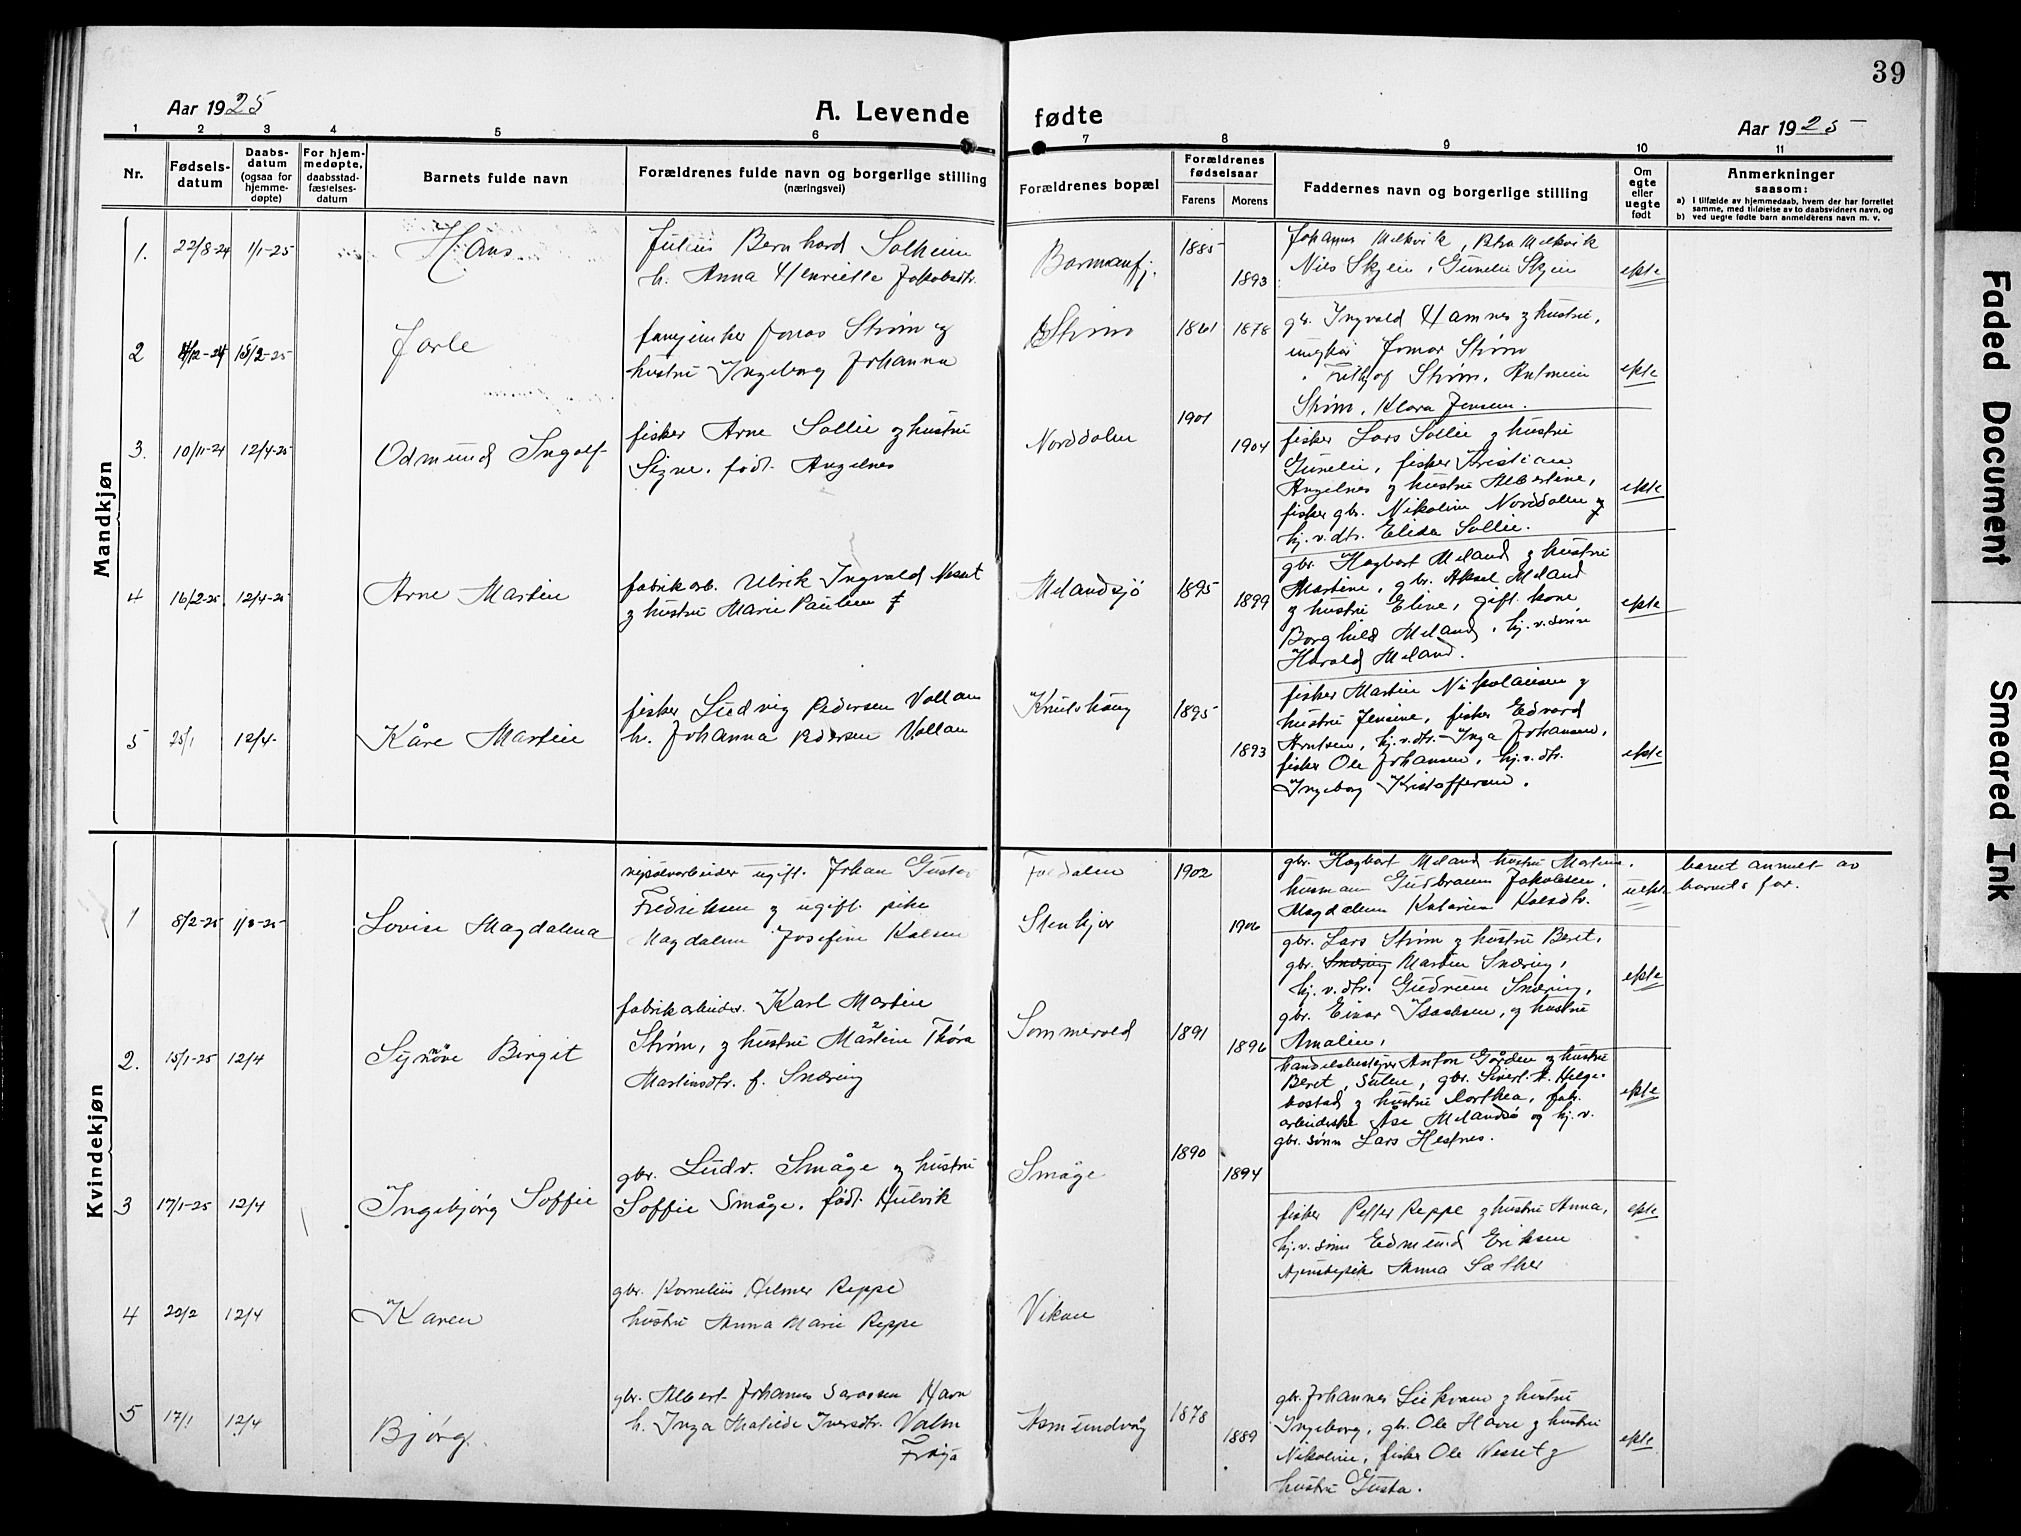 39
Aar 1925
A. Levende fødte
Aar 1925
1 2 3 4 5 6 7 8 9 10 11
Nr.
Fødselsdatum
Daabsdatum (ogsaa for hjemmedøpte)
For hjemmedøpte, daabsstadfæstelsesdatum
Barnets fulde navn
Forældrenes fulde navn og borgerlige stilling (næringsvei)
Forældrenes bopæl
Forældrenes fødselsaar
Farens Morens
Faddernes navn og borgerlige stilling
Om egte eller uegte født
Anmerkninger
saasom:
a) I tilfælde av hjemmedaab, hvem der har forrettet samme, med tilføielse av to daabsvidners navn, og
b) ved uegte fødte barn anmelderens navn m. v.
Mandkjøn
1. 22/8-24 1/1-25 Hans
Julius Bernhard Solheim
h. Anna Henriette Jakobsdtr.
1885 1893
Nils Skjein, Gunelie Skjein
ekte
2 15/2-25 Jarle
Jonas Strøm og
hustru Ingeborg Johanna
Strøm 1861 1878
gb. Ingvald Hamnes og hustru,
Strøm
Frithjof Strøm, Antonie
Strøm, Klara Jensen.
ekte
3. 10/11-24 12/4-25 Odmund Ingolf
fisker Arne Sollie og hustru
Signe, født Angelnes
Norddalen 1901 1904
fisker Lars Sollie og hustru
Gunelie, fisker Kristian
Angelnes og hustru Albertine,
fisker gbr. Nikoline Norddalen og
hj. v. dtr. Elida Sollie.
ekte
4 16/2-25 12/4-25 Arne Martin
fabrikarb. Ulrik Ingvald Nesset
og hustru Marie Paulsen
Melandsjø 1895 1899
gbr. Hagbart Meland og hustru
Martine, gbr. Aksel Meland
og hustru Eline, gift kone
Borghild Meland, hj. v. sønn
Harald Meland.
ekte
5 25/1 12/4- Kåre Martin
fisker Ludvig Pedersen Vollan
h. Johanna Pedersen Vollan
Knutshaug 1895 1893
fisker Martin Nikolaisen og
hustru Jensine, fisker Edvard
Arntsen, hj. v. dtr. Inga Johansen,
fisker Ole Johansen, hj. v. dtr.
Ingeborg Kristoffersen.
ekte
Kvindekjøn
1 8/2-25 1/3-25 Lovise Magdalena
ugift. Johan Gustav
Fredriksen og ugift pike
Magdalena Josefine Kalsen
Stenkjer 1902 1906
gbr. Hagbart Meland hustru Martine,
husmann Gudbrann Jakobsen,
Magdalena Katarina Kalsdtr.
uekte
barnet anmelt av
barnets far.
2. 15/1-25 12/4 Synnøve Birgit
fabrikarbeider. Karl Martin
Strøm, og hustru Martine Thora
Martinsdtr. f. Snæring
Sommervold 1891 1896
gbr. Lars Strøm og hustru Beret,
gbr. Snæring Martin Snæring,
hj. v. dtr. Gudrun Snæring,
gbr. Einar Isaksen, og hustru
Amalie,
ekte
3 17/1-25 12/4 Ingebjørg Soffie
gbr. Ludv. Småge og hustru
Soffie Småge, født Hulvik
Småge 1890 1894
handelsbestyrer Anton Gården og hustru
Beret, Sulen, gbr. Sivert K. Helgebostad og hustru Dorthea, fab.
arbeiderske Åse Melandsø og hj. v.
gbr. sønn Lars Hestnes.
ekte
4 20/2 12/4 Karen
gbr. Kornelius Hilmer Reppe
hustru Anna Marie Reppe
Vikan
fisker Petter Reppe og hustru Anna,
hj. v. sønn Edmund Eriksen
Anna Sæther
ekte
5 17/1 12/4 Bjørg.
gbr. Albert Johannes Havn
h. Inga Matilde Iversdtr. Valen
Frøya
Asmundvåg 1878 1889
gbr. Johannes Leikvam og hustru
Ingeborg, gbr. Ole Havn og hustru
Nikoline, fisker Ole Nesset og
hustru Gusta.
ekte
Faded Document
Smeared Ink